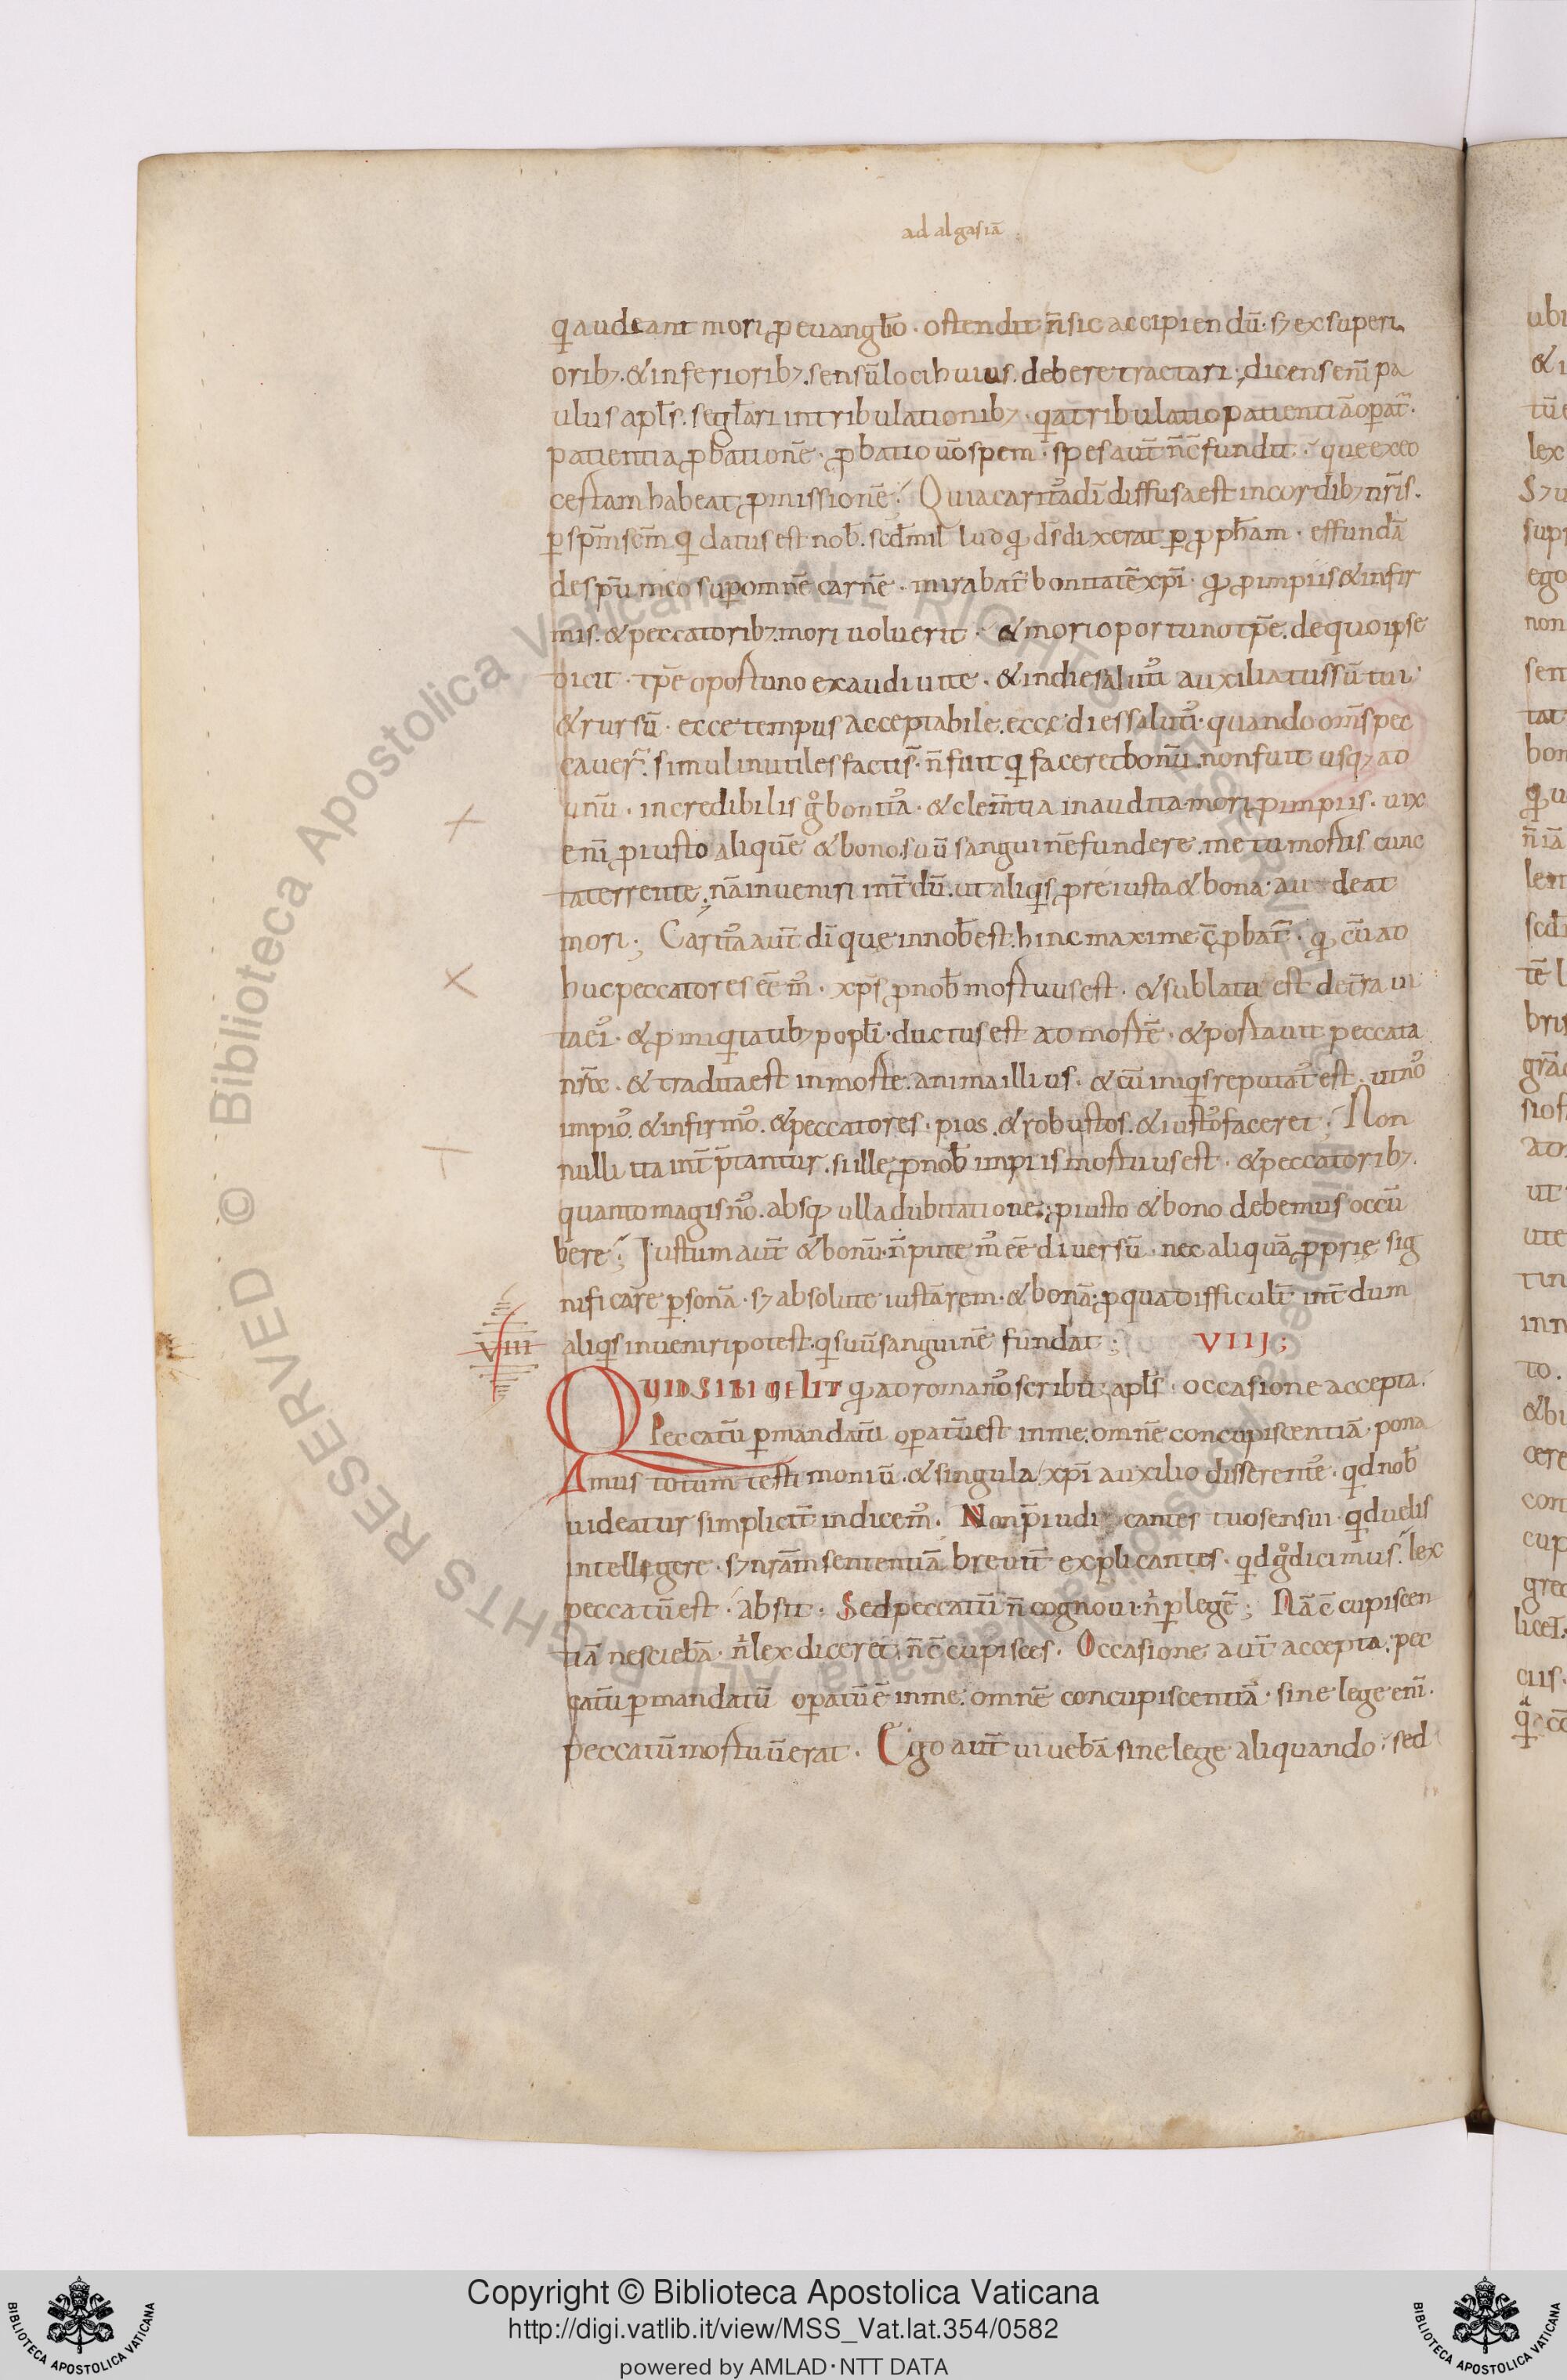 ad algasiā
qi audeant mori ꝓ euangl̄io · ostendit n̄ sic accipiendū · sꝫ ex superi
oribꝫ · & inferioribꝫ · sensū loci huius · debere tractari ; dicens enī pa
ulus apl̄s · se gl̄ari in tribulationibꝫ · qi a tribulatio patientiā opat̄ ·
patientia ꝓbationē · ꝓbatio uō spem · spes aut̄ n̄ c̄fundit · que ex eo
c̄ftam habeat ꝓmissionē · Quia carita᷒ dī diffusa est in cordibꝫ nr̄is ·
ꝑ spm̄ scm̄ qi datus est nob̄ · scd̄m il lud qi ds̄ dixerat ꝑ ꝓph̄am · effundā
de spū meo suꝑ omnē carnē · mirabat̄ bonitatē xpī · qi ꝓ impiis & infir
mis · & peccatoribꝫ mori uoluerit · & mori oportuno tp̄e · de quo ipse
dicit · tp̄e oportuno exaudiui te · & in die saluti᷒ auxiliatus sū tui
& rursū · ecce tempus acceptabile · ecce dies saluti᷒ · quando om̄s pec
cauer̄ · simul inutiles facti s̄ · n̄ fuit qi faceret bonū · non fuit usqꝫ ad
unū · incredibilis gͦ bonita᷒ · & clem̄tia inaudita mori ꝓ impiis · uix
enī ꝓ iusto aliquē & bono suū sanguinē fundere · metu mortis cunc
ta terrente · nā inueniri int̄dū · ut aliqis ꝓ re iusta & bona · audeat
mori ; Carita᷒ aut̄ dī que in nob̄ est · hinc maxime c̄ꝓbat̄ · qi cū ad
huc peccatores eē m᷒ · xps̄ ꝓ nob̄ mortuus est · & sublata est de tr̄a ui
ta ei᷒ · & ꝓ iniqitatibꝫ popl̄i · ductus est ad mortē · & portauit peccata
nr̄a · & tradita est in morte · anima illius · & cū iniqis reputat᷒ est · ut no᷒
impio᷒ · & infirmo᷒ · & peccatores · pios · & robustos · & iusto᷒ faceret ; Non
nulli ita int̄p̄tantur · si ille ꝓ nob̄ impiis mortuus est · & peccatoribꝫ ·
quanto magis no᷒ · absqꝫ ulla dubitatione · ꝓ iusto & bono debemus occū
bere ; Iustum aut̄ & bonū · n̄ putem᷒ eē diuersū · nec aliquā ꝓprie sig
nificare ꝑsonā · sꝫ absolute iustā rem · & bonā · ꝓ qua difficult̄ int̄dum
VIII aliqis inueniri potest · qi suū sanguinē fundat ; VIIJ ;
QUID SIBI UELIT qi ad romano᷒ scribit apl̄s · occasione accepta ·
Peccatū ꝑ mandatū opatū est in me · omnē concupiscentiā · pona
Amus totum testimoniū · & singula xpī auxilio disserente᷒ · qd nob̄
uideatur simplicit̄ indicem᷒ · Non p̄iudicantes tuo sensui · qd uelis
intellegere · sꝫ nr̄am sententiā breuit̄ explicantes · qd gͦ dicimus · lex
peccatū est · absit · Sed peccatū n̄ cognoui · nͥ ꝑ legē ; Nā c̄cupiscen
tiā nesciebā · nͥ lex diceret · n̄ c̄cupisces · Occasione aut̄ accepta · pec
catū ꝑ mandatū opatū ē in me · omnē concupiscentiā · sine lege enī ·
peccatū mortuū erat · Ego aut̄ uiuebā sine lege aliquando · sed
Copyright © Biblioteca Apostolica Vaticana
http://digi.vatlib.it/view/MSS_Vat.lat.354/0582
powered by AMLAD·NTT DATA